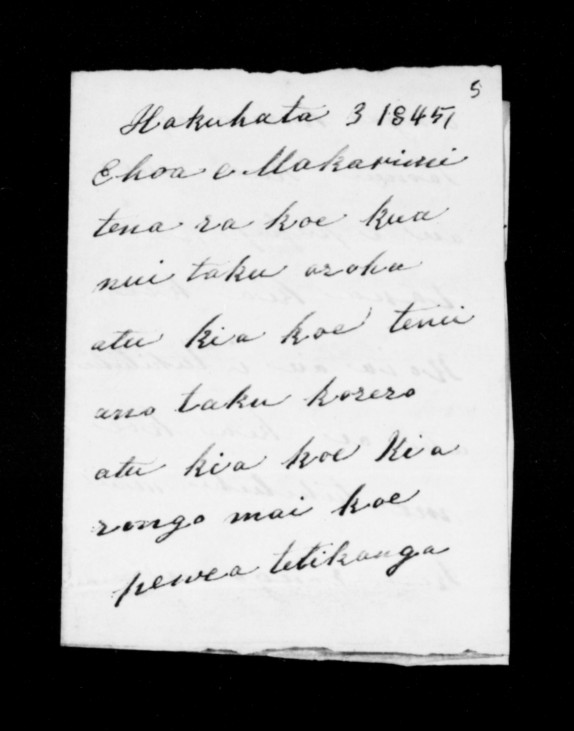 5
Hakuhata 3 1845/
Ehoa e Makarini
tena ra koe kua
nui taku aroha
atu kia koe tenei
ano taku korero
atu kia koe Kia
rongo mai koe
pewea tetikanga